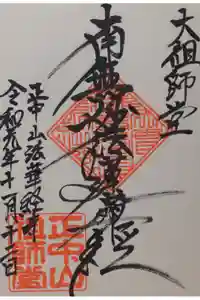 大祖師堂
南無妙法蓮華経
正中山法華経寺
令和元年十月十二日
正中山
祖師堂